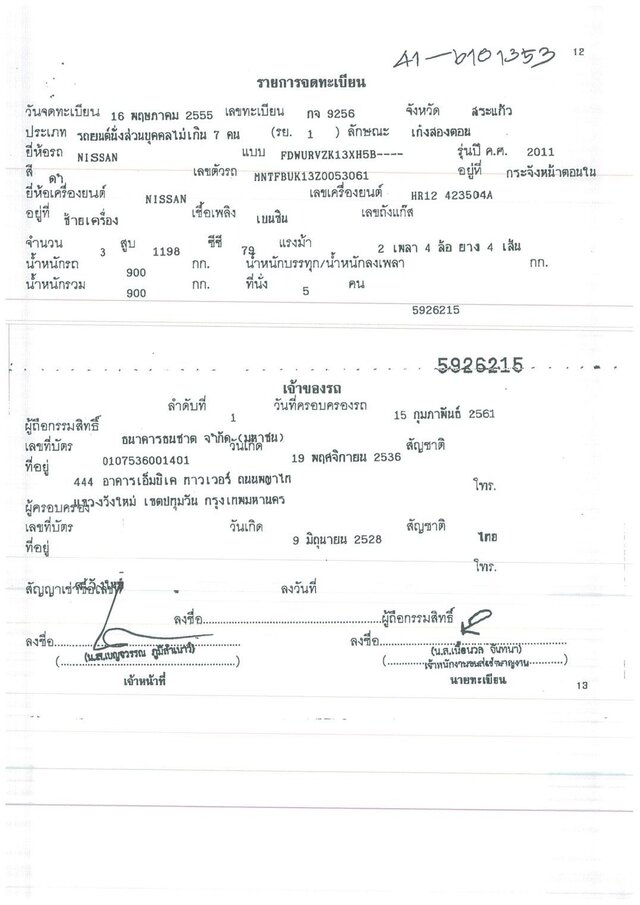 41-6101353
12
รายการจดทะเบียน
วันจดทะเบียน 16 พฤษภาคม 2555 เลขทะเบียน กจ 9256 จังหวัด สระแก้ว
ประเภท รถยนต์นั่งส่วนบุคคลไม่เกิน 7 คน (รย. 1 ) ลักษณะ เก๋งสองตอน
ยี่ห้อรถ NISSAN แบบ FDWURVZK13XH5B---- รุ่นปี ค.ศ. 2011
สี ดำ เลขตัวรถ MNTFBUK13Z0053061 อยู่ที่ กระจังหน้าตอนใน
ยี่ห้อเครื่องยนต์ NISSAN เลขเครื่องยนต์ HR12 423504A
อยู่ที่ ซ้ายเครื่อง เชื้อเพลิง เบนซิน เลขถังแก๊ส
จำนวน 3 สูบ 1198 ซีซี 79 แรงม้า 2 เพลา 4 ล้อ ยาง 4 เส้น
น้ำหนักรถ 900 กก. น้ำหนักบรรทุก/น้ำหนักลงเพลา กก.
น้ำหนักรวม 900 กก. ที่นั่ง 5 คน
5926215
5926215
เจ้าของรถ
ลำดับที่ 1 วันที่ครอบครองรถ 15 กุมภาพันธ์ 2561
ผู้ถือกรรมสิทธิ์ ธนาคารธนชาต จำกัด (มหาชน)
เลขที่บัตร 0107536001401 วันเกิด 19 พฤศจิกายน 2536 สัญชาติ
ที่อยู่ 444 อาคารเอ็มบิเค ทาวเวอร์ ถนนพญาไท โทร.
แขวงวังใหม่ เขตปทุมวัน กรุงเทพมหานคร
ผู้ครอบครอง
เลขที่บัตร วันเกิด 9 มิถุนายน 2528 สัญชาติ ไทย
ที่อยู่ โทร.
สัญญาเช่าซื้อเลขที่ ลงวันที่
ลงชื่อ ผู้ถือกรรมสิทธิ์
ลงชื่อ ลงชื่อ
(น.ส.เบญจวรรณ ภูมิลำเนาว์) (น.ส.เนื้อนวล จันทนา)
เจ้าหน้าที่ นายทะเบียน
13